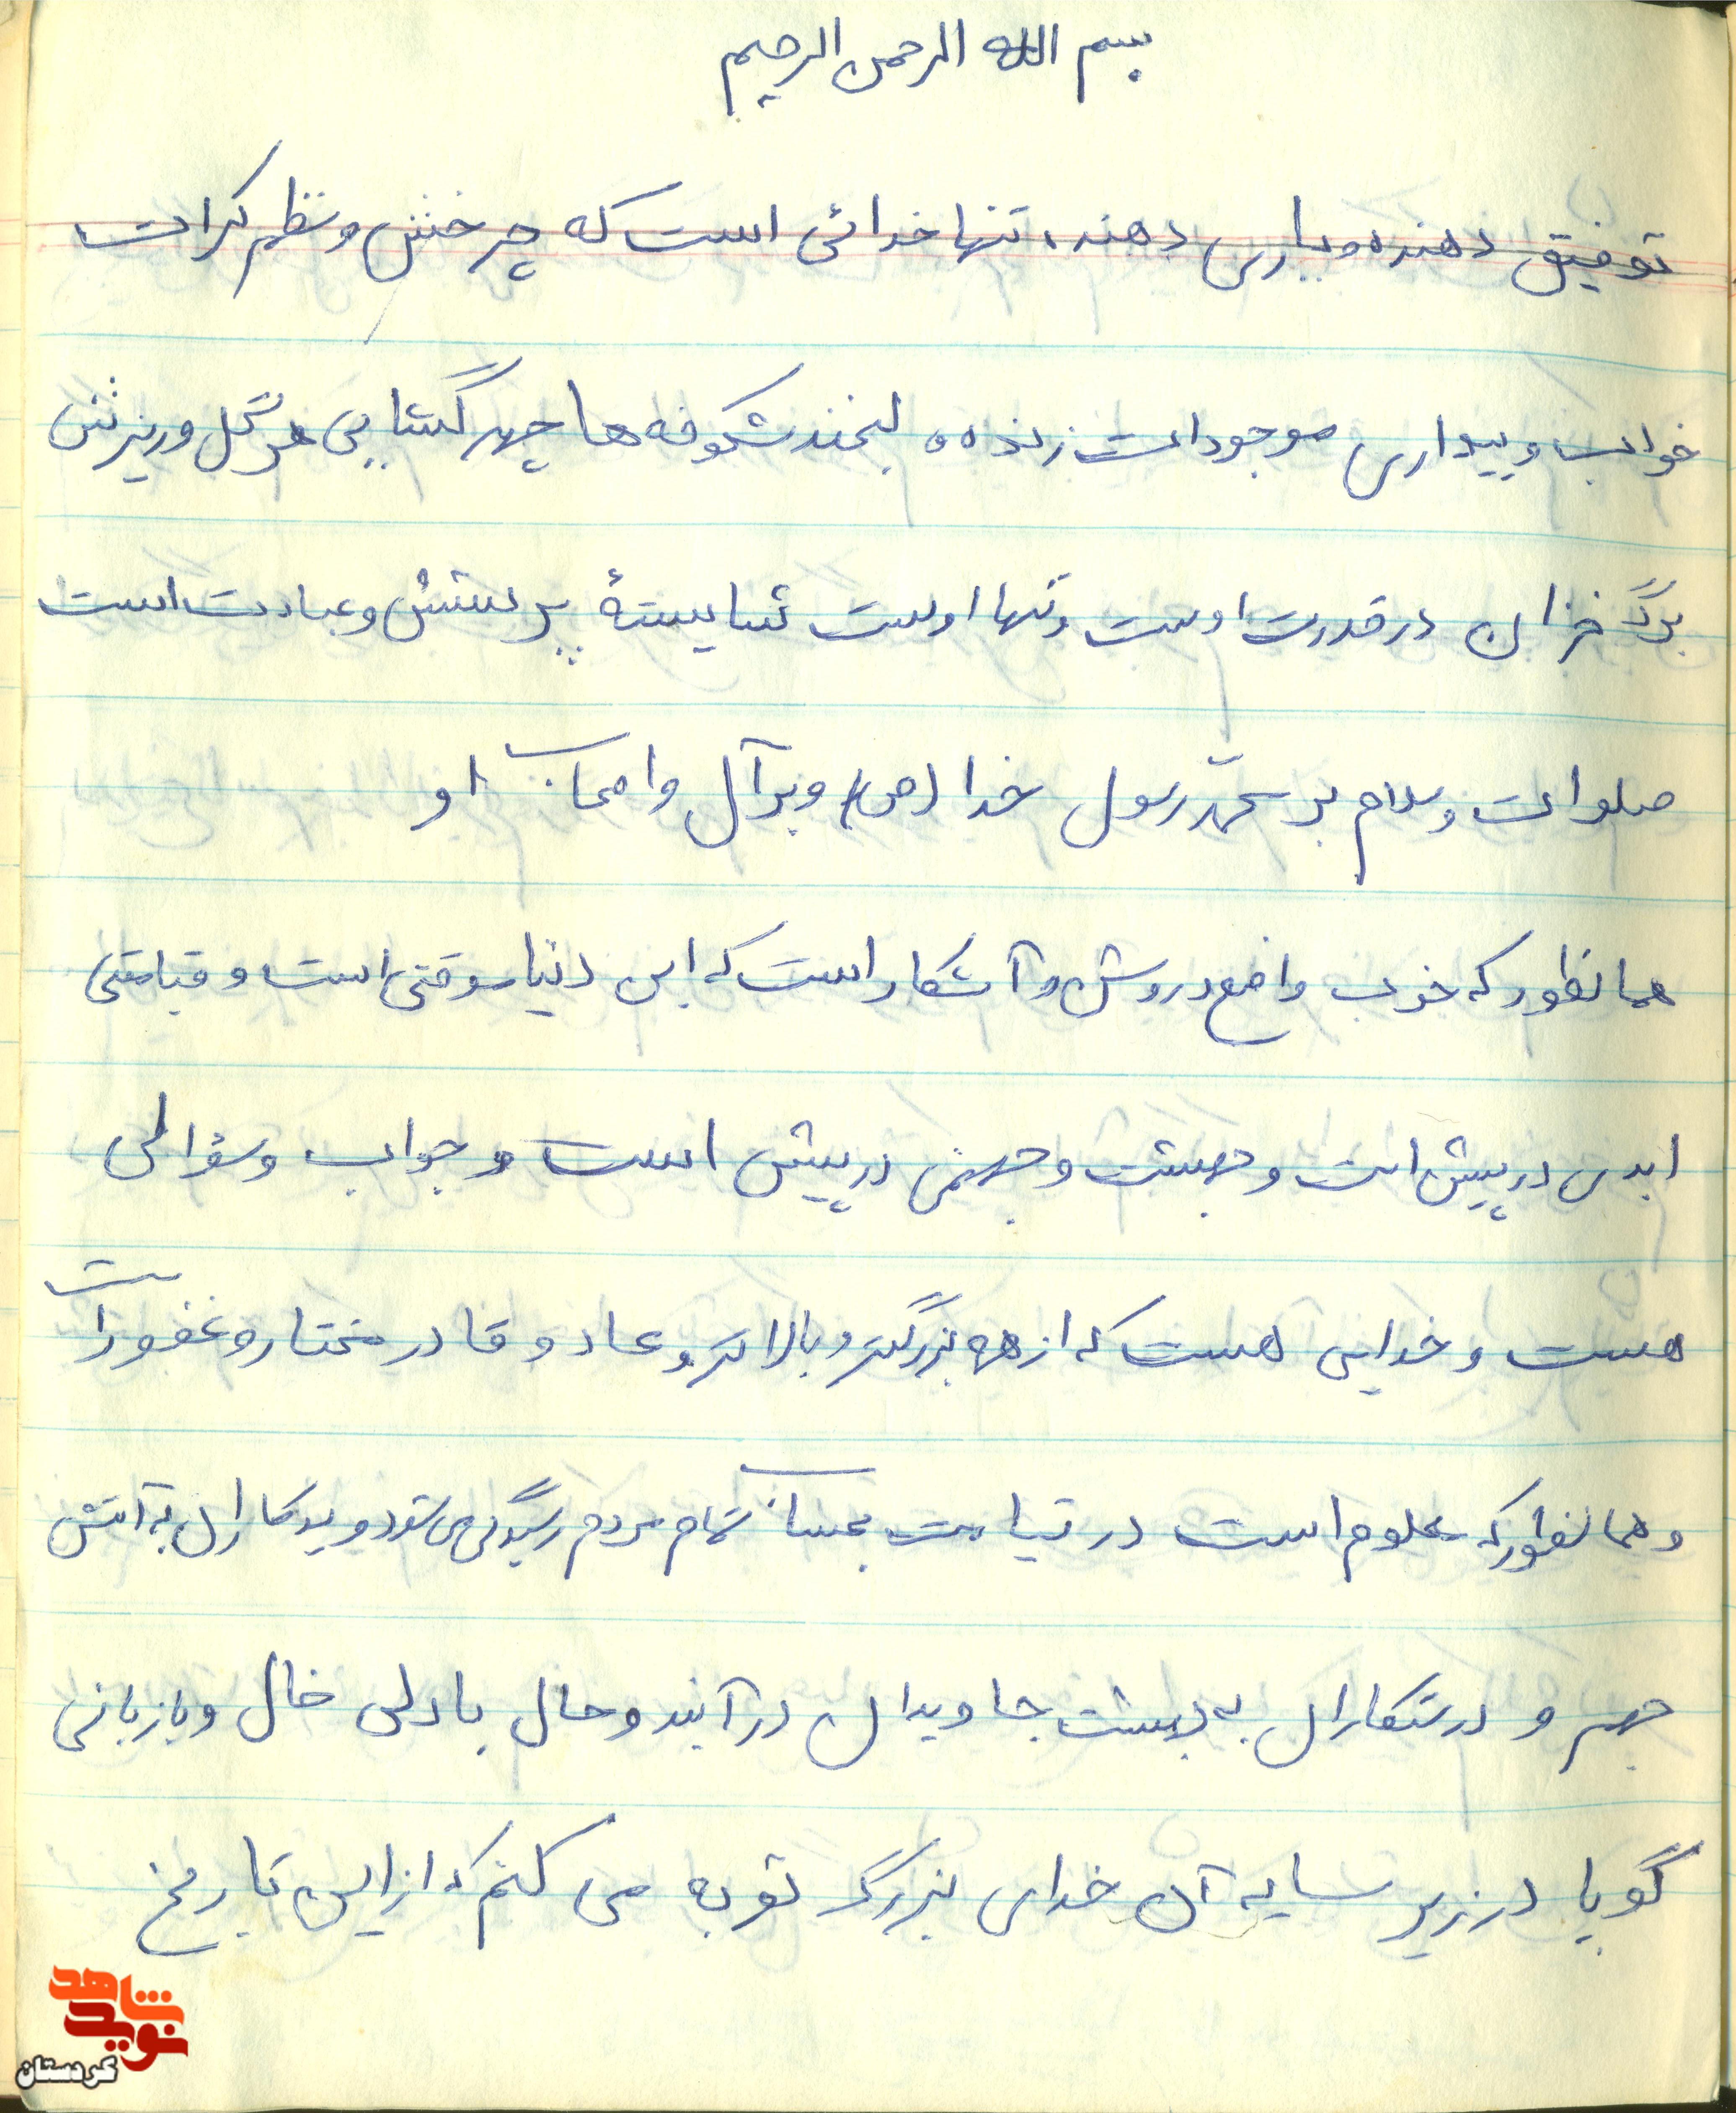 بسم الله الرحمن الرحیم
توفیق دهنده و یاری دهنده تنها خدائی است که چرخش و نظم کرات
خواب و بیداری موجودات زنده و لبخند شکوفه ها چهر گشایی هر گل و ریزش
برگ خزان در قدرت اوست و تنها اوست شایستهٔ پرستش و عبادت است
صلوات و سلام بر محمّد رسول خدا (ص) و بر آل و اصحاب او
همانطور که خوب واضع و روشن و آشکار است که این دنیا موقتی است و قیامتی
ابدی در پیش است و بهشت و جهنمی در پیش است و جواب و سؤالی
هست و خدایی هست که از همه بزرگتر و بالاتر و عاد و قادر مختار و غفور است
و همانطور که معلوم است در قیامت بحساب تمام مردم رسیدگی می شود و بدکاران به آتش
جهنم و درستکاران به بهشت جاویدان در آیند و حال با دلی خال و با زبانی
گویا در زیر سایه آن خدای بزرگ توبه می کنم که از این تاریخ
شاهد
نوید
کردستان